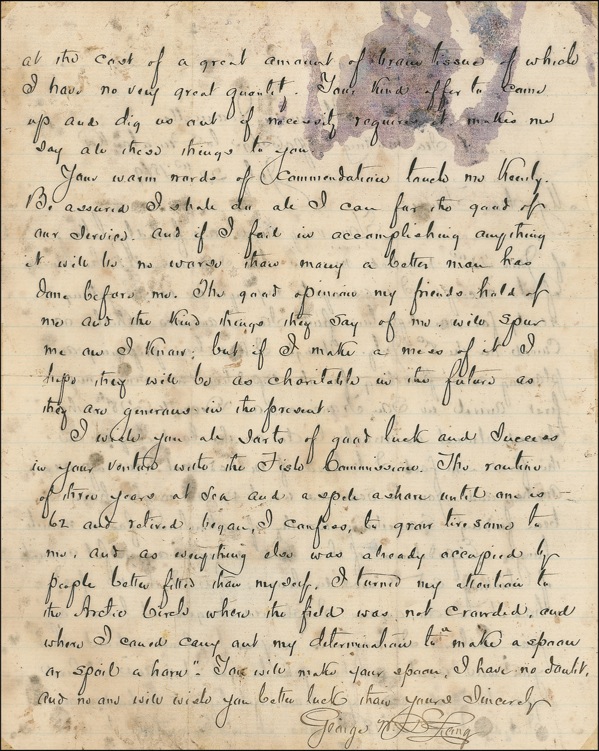 at the cost of a great amount of brain tissue of which
I have no very great quantit. Your kind offer to come
up and dig us out if necessity requires it makes me
say all these things to you
Your warm words of commendation touch me keenly.
Be assured I shall do all I can for the good of
our Service. and if I fail in accomplishing anything
it will be no worse than many a better man has
done before me. The good opinion my friends hold of
me and the kind things they say of me will spur
me on I know; but if I make a mess of it I
hope they will be as charitable in the future as
they are generous in the present
I wish you all sorts of good luck and success
in your venture with the Fish Commission. The routine
of three years at sea and a spell ashore until one is
62 and retired began, I confess, to grow tiresome to
me, and as everything else was already occupied by
people better fitted than myself, I turned my attention to
the Arctic Circle where the field was not crowded, and
where I could carry out my determination to "make a spoon
or spoil a horn". You will make your spoon, I have no doubt,
and no one will wish you better luck than yours Sincerely
George W. De Long